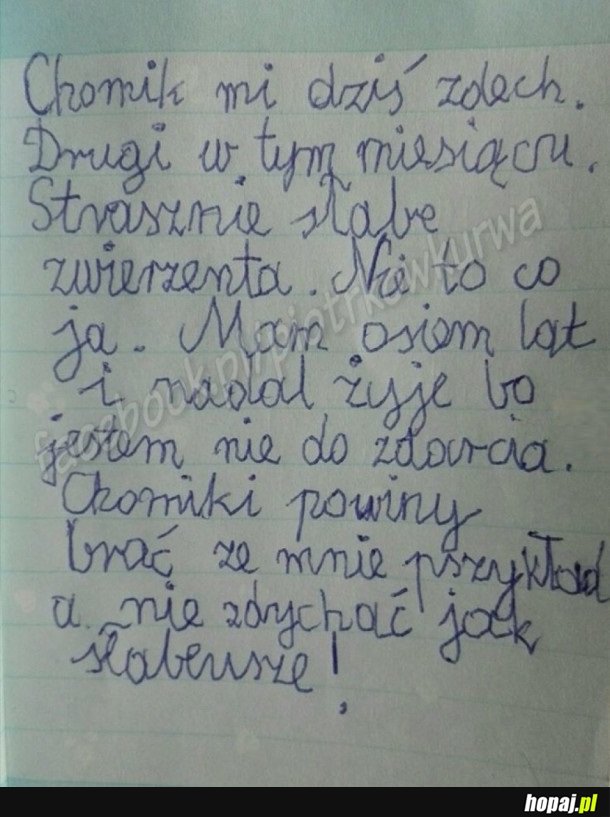 Chomik mi dziś zdech.
Drugi w tym miesiącu.
Strasznie słabe
zwierzenta. Nie to co
ja. Mam osiem lat
i nadal żyje bo
jestem nie do zdarcia.
Chomiki powiny
brać ze mnie pszykład
a nie zdychać jak
słabeusze!
facebook.pl/piotrkowkurwa
hopaj.pl